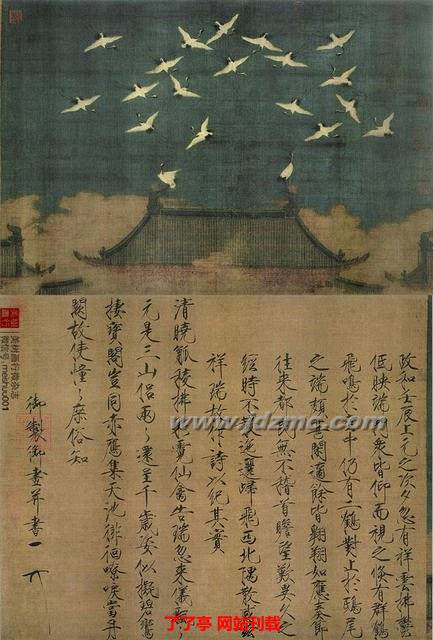 政和壬辰上元之次夕忽有祥雲拂鬱
低映端門眾皆仰而視之倏有群鶴
飛鳴於空中仍有二鶴對止於鴟尾
之端頗甚閑適餘皆翱翔如應奏節
往來都民無不稽首瞻望歎異久之
經時不散迤邐歸飛西北隅散感茲
祥瑞故作詩以紀其實
清曉觚稜拂彩霓仙禽告瑞忽來儀飄〻
元是三山侶兩〻還呈千歲姿似擬碧鸞
棲寶閣豈同赤鴈集天池徘徊嘹唳當丹
闕故使憧〻庶俗知
御製御畫并書
www.jdzmc.com
微信号 meishu001
了了亭 网站刊载